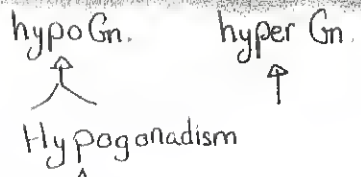 hypoGn. hyper Gn.
Hypogonadism